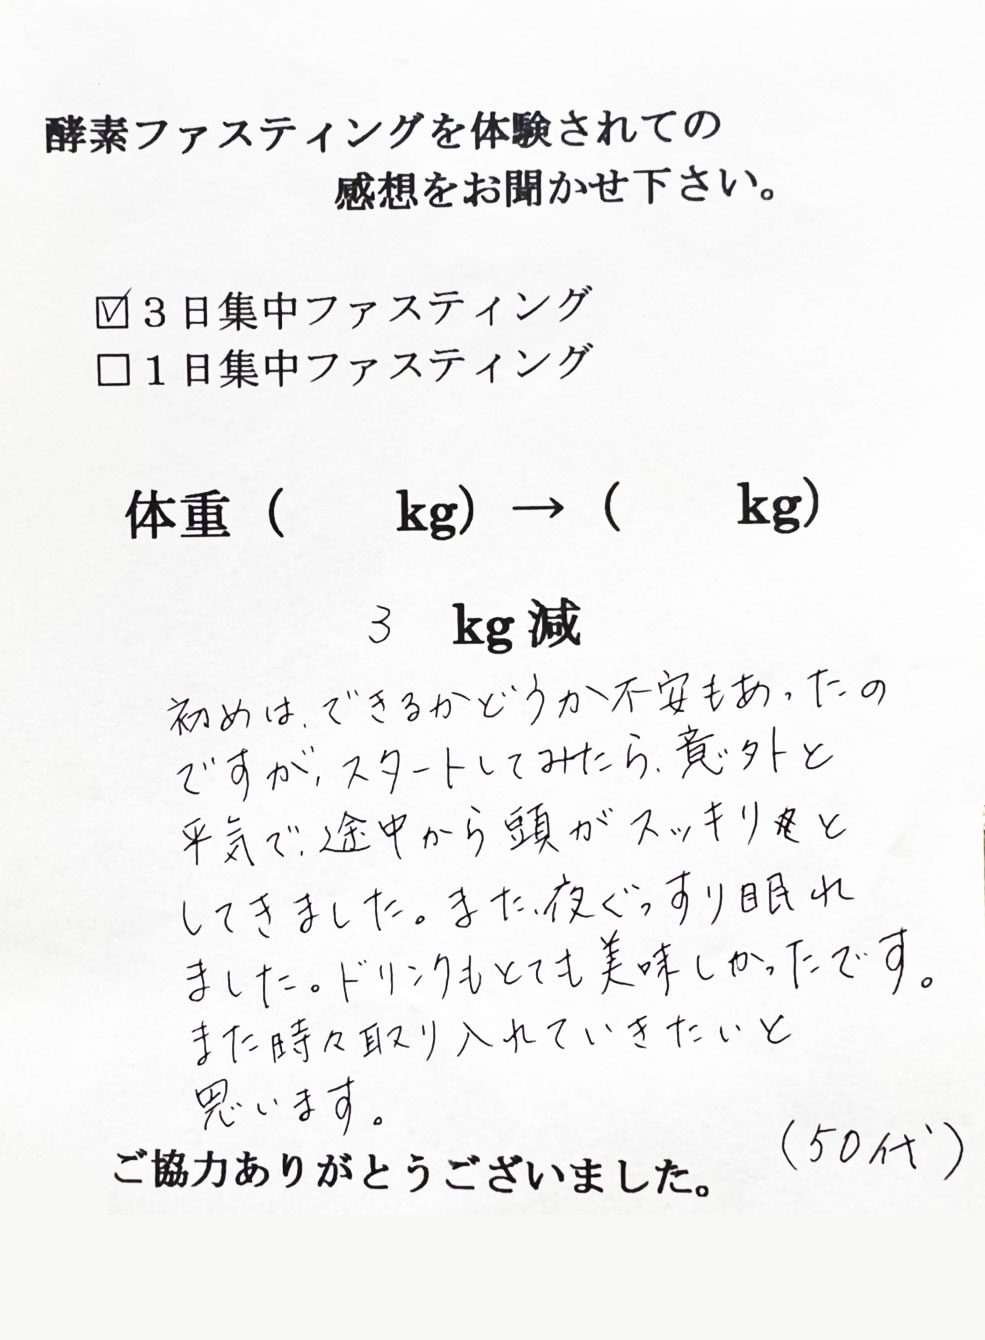 酵素ファスティングを体験されての
感想をお聞かせ下さい。
☑3日集中ファスティング
□1日集中ファスティング
体重(　　kg)→(　　kg)
3 kg減
初めは、できるかどうか不安もあったの
ですが、スタートしてみたら、意外と
平気で、途中から頭がスッキリと
してきました。また、夜ぐっすり眠れ
ました。ドリンクもとても美味しかったです。
また時々取り入れていきたいと
思います。
(50代)
ご協力ありがとうございました。